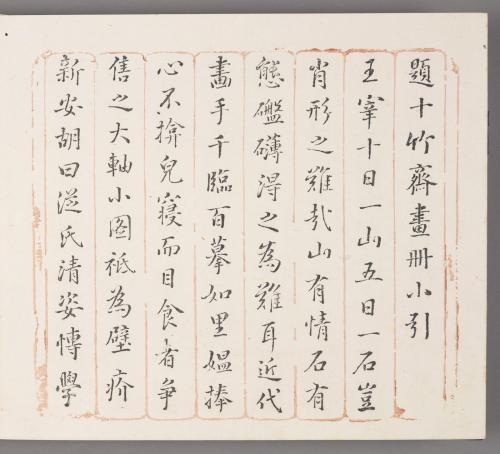 題十竹齋畫冊小引
王宰十日一山五日一石豈
肖形之難哉山有情石有
態礛礴得之為難耳近代
畫手千臨百摹如里媼捧
心不揜皃寢而目食者爭
售之大軸小圖祗為壁疥
新安胡曰從氏清姿愽學